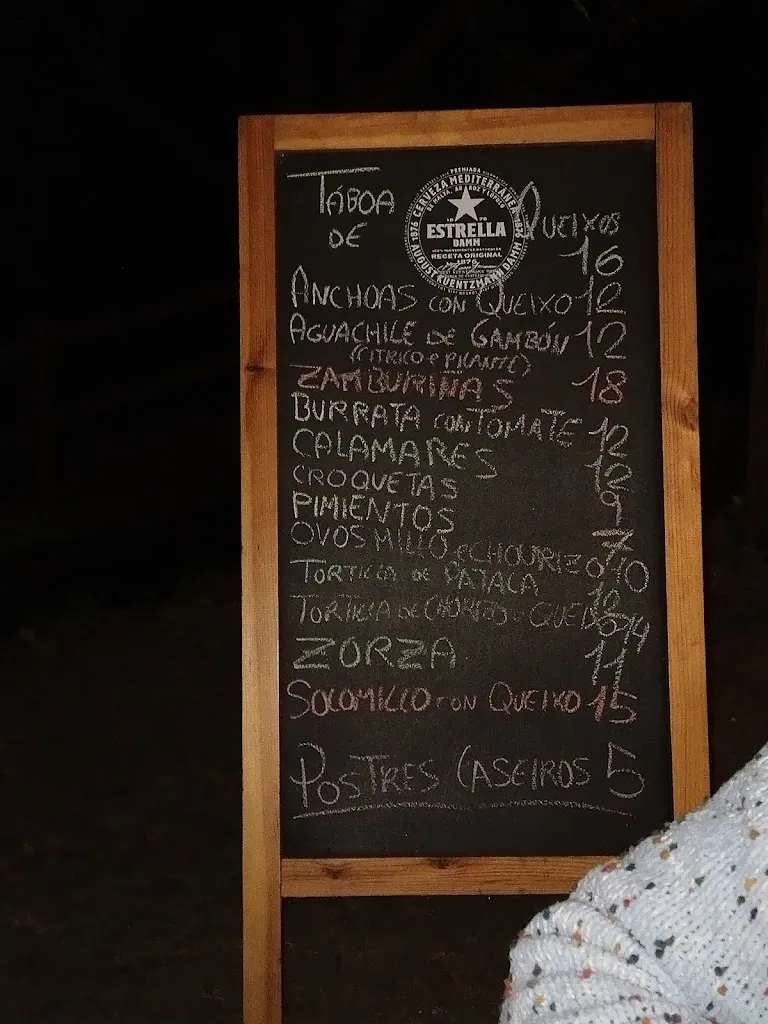 TÁBOA
DE
QUEIXOS
16
PREMIADA
CERVEZA MEDITERRÁNEA
DE MALTA, ARROZ Y LÚPULO
1876
ESTRELLA
DAMM
RECETA ORIGINAL
1876
AUGUST KUENTZMANN DAMM
ANCHOAS CON QUEIXO 12
AGUACHILE DE GAMBÓN 12
(CÍTRICO e PICANTE)
ZAMBURIÑAS 18
BURRATA CON TOMATE 12
CALAMARES 12
CROQUETAS 9
PIMIENTOS 7
OVOS MILLO e CHOURIZO 10
TORTILLA DE PATACA 10
TORTILLA DE CHORIZO e QUEIXO 14
ZORZA 11
SOLOMILLO CON QUEIXO 15
POSTRES CASEIROS 5